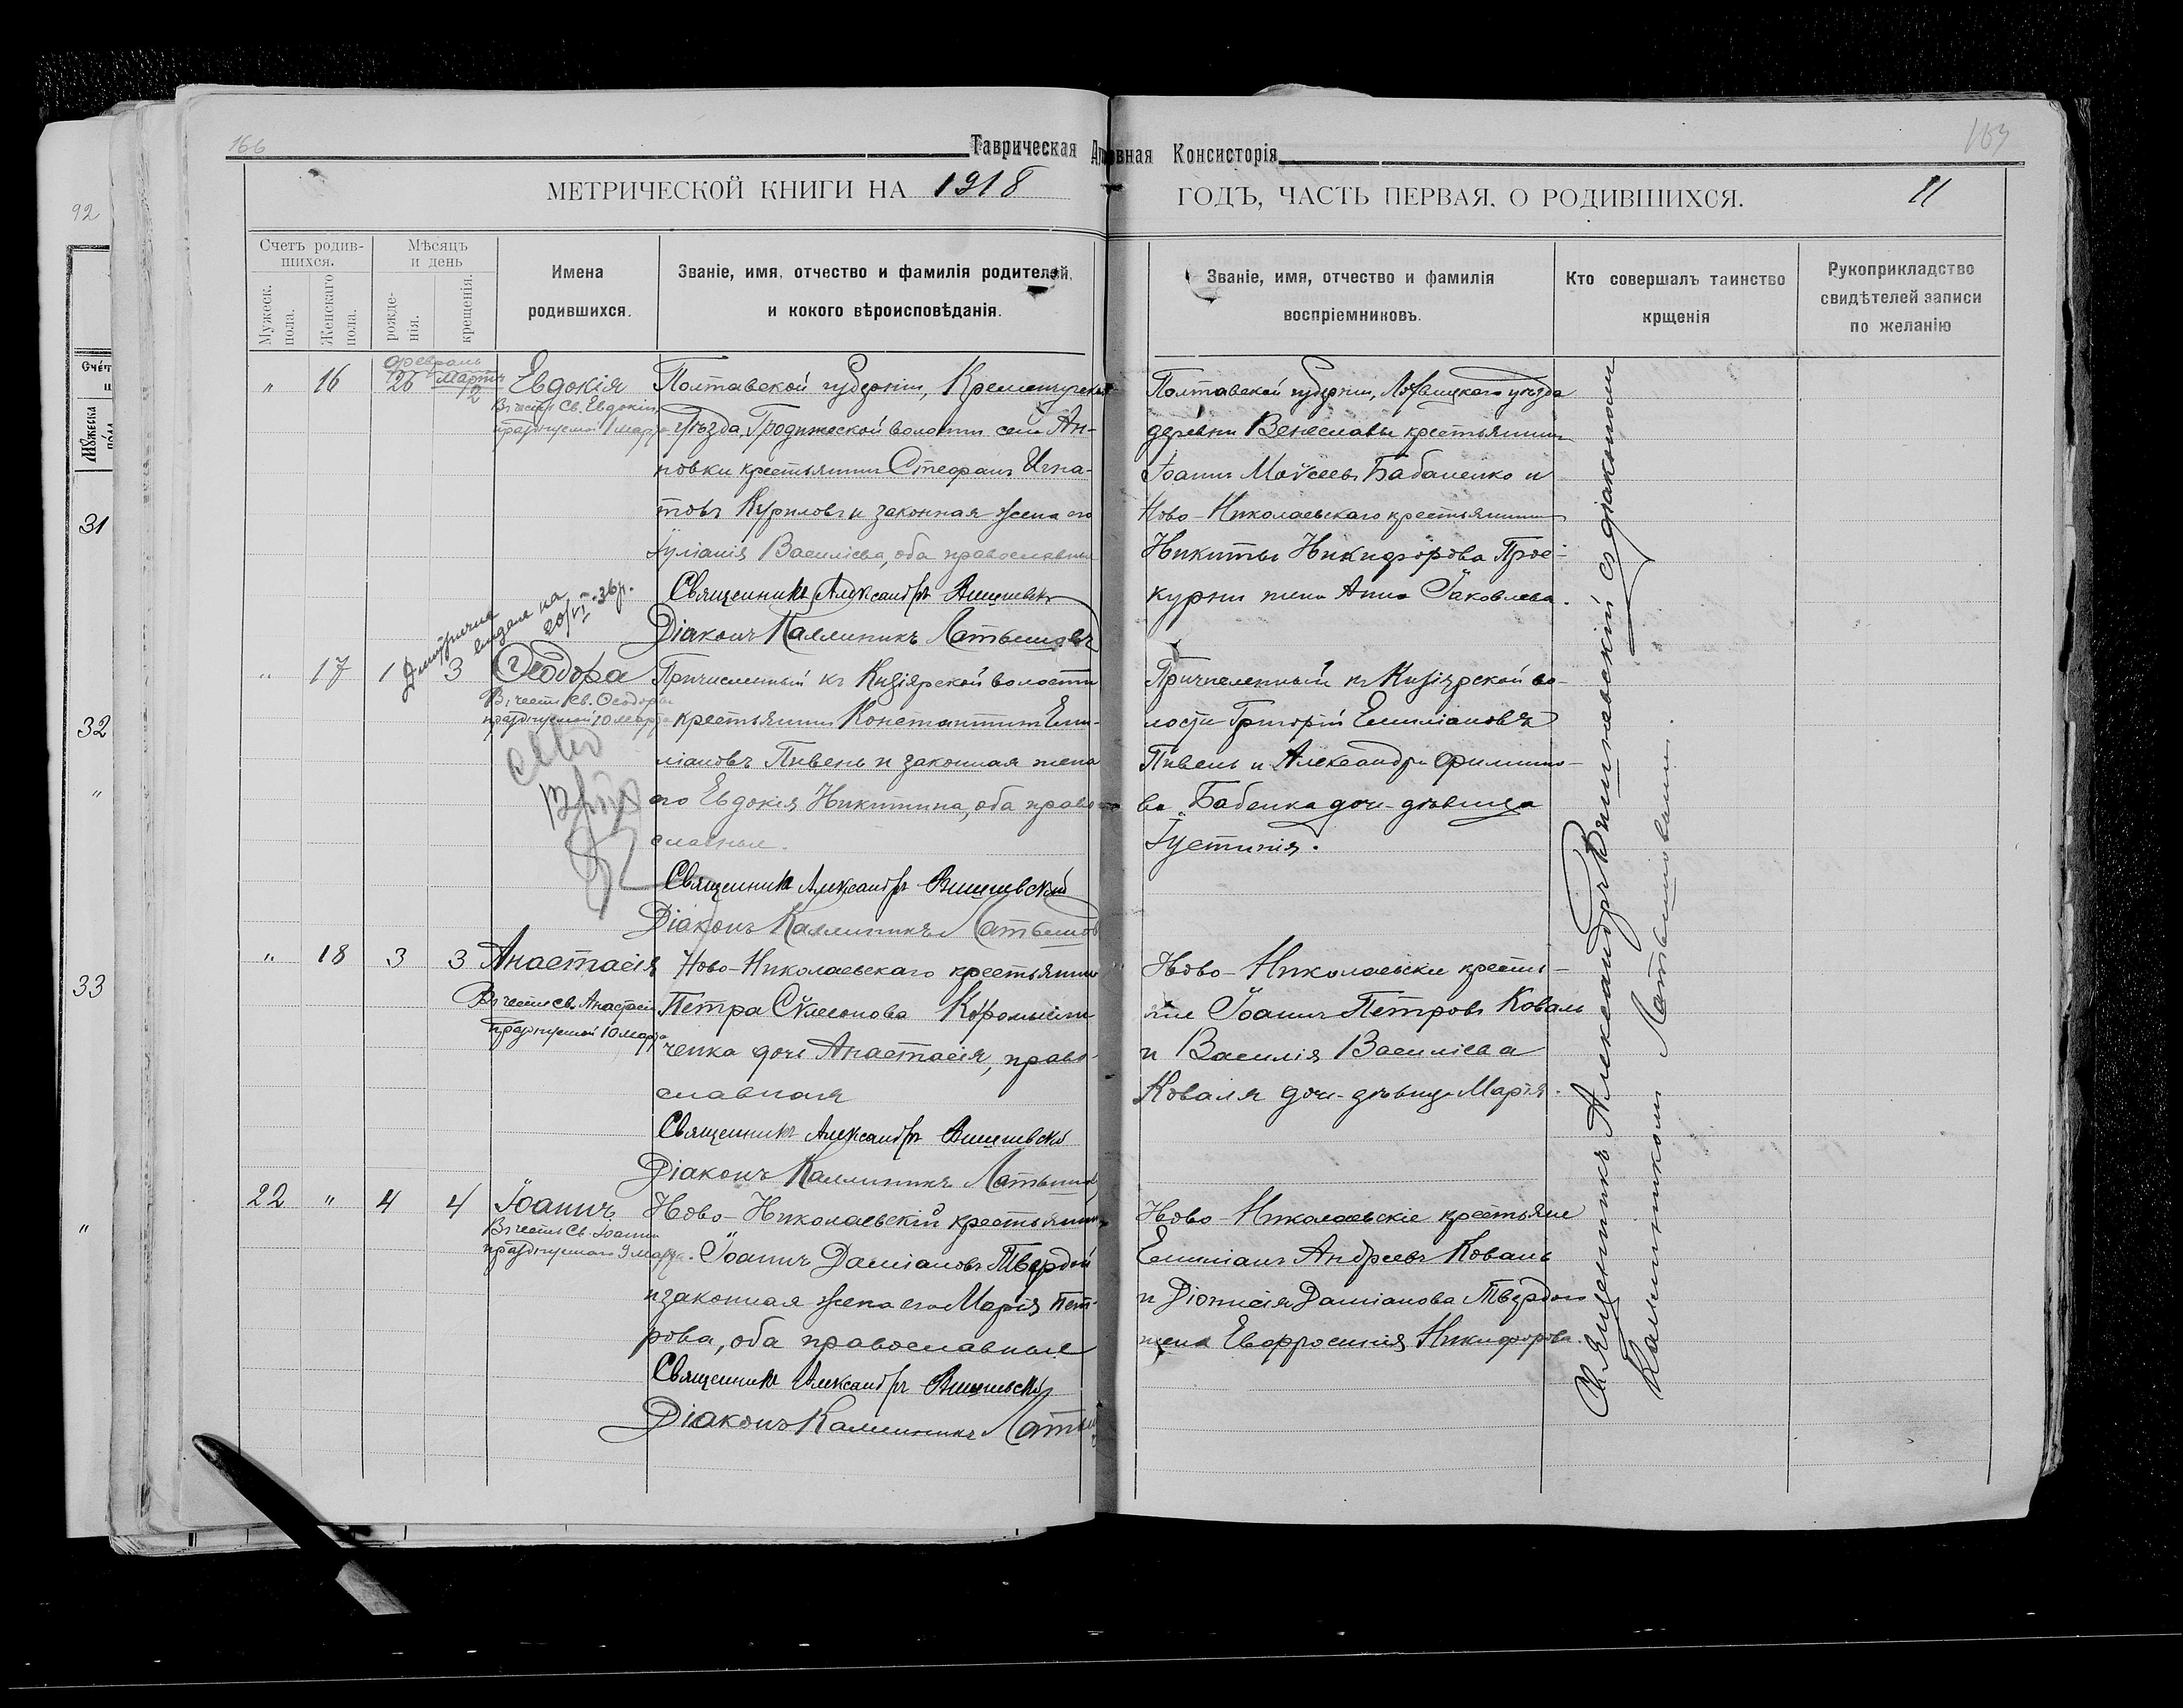 166
Таврическая Духовная Консисторія
МЕТРИЧЕСКОЙ КНИГИ НА 1918
ГОДЪ, ЧАСТЬ ПЕРВАЯ, О РОДИВШИХСЯ.
11
92
Счетъ родив-
шихся.
Мужеск.
пола.
Женскаго
пола.
Мѣсяцъ
и день
рожде-
нія.
крещенія.
Имена
родившихся.
Званіе, имя, отчество и фамилія родителей,
и кокого вѣроисповѣданія.
Званіе, имя, отчество и фамилія
воспріемниковъ.
Кто совершалъ таинство
крщенія
Рукоприкладство
свидѣтелей записи
по желанію
31
32
"
33
"
" 16
Февраль
26
Мартъ
12
Евдокія
Въ честь Св. Евдокіи,
празднуемой 1 марта
Полтавской губерніи, Кременчугскаго
Уѣзда, Градижской волости села Ан-
новки крестьянинъ Стефанъ Игна-
товъ Куриловъ и законная жена его
Іуліанія Василіева, оба православные
Священникъ Александръ Вишневскій
Діаконъ Каллиникъ Латышовъ
Полтавской губерніи, Лохвицкаго уѣзда
деревни Венеславы крестьянинъ
Іоаннъ Моѵсеевъ Бабаненко и
Ново-Николаевскаго крестьянина
Никиты Никифорова Прос-
курни жена Анна Іаковлева.
" 17 1 3
выдана на
20/VI-36г.
Ѳеодора
Въ честь Св. Ѳеодоры
празднуемой 10 марта
Причисленный къ Кизіярской волости
крестьянинъ Константинъ Еми-
ліановъ Пивень и законная жена
его Евдокія Никитина, оба право-
славные.
Священникъ Александръ Вишневскій
Діаконъ Каллиникъ Латышовъ
Причисленный къ Кизіярской во-
лости Григорій Емиліановъ
Пивень и Александра Филиппо-
ва Бабенка дочь-дѣвица
Іустинія.
" 18 3 3
Анастасія
Въ честь Св. Анастасіи
празднуемой 10 марта
Ново-Николаевскаго крестьянина
Петра Сѵмеонова
ченка дочь Анастасія, право-
славная
Священникъ Александръ Вишневскій
Діаконъ Каллиникъ Латышовъ
Ново-Николаевскіе кресть-
яне Іоаннъ Петровъ Коваль
и Василія Василіева
Коваля дочь-дѣвица Марія.
22 " 4 4
Іоаннъ
Въ честь Св. Іоанна
празднуемаго 9 марта.
Ново-Николаевскій крестьянинъ
Іоаннъ Даміановъ Твердой
и законная жена его Марія Пет-
рова, оба православные
Священникъ Александръ Вишневскій
Діаконъ Каллиникъ Латышовъ
Ново-Николаевскіе крестьяне
Емиліанъ Андреевъ Коваль
и Діонисія Даміанова Твердого
жена Евфросинія Никифорова.
Священникъ Александръ Вишневскій съ діакономъ
Каллиникомъ Латышовымъ.